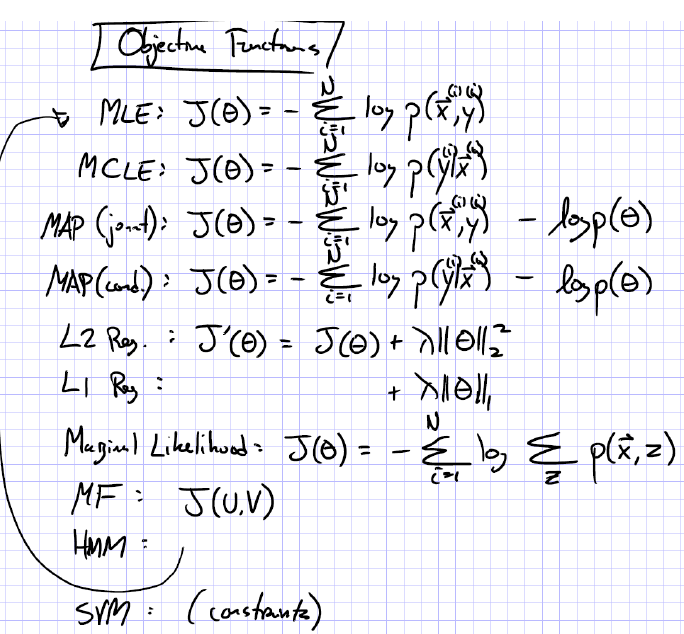 Objective Functions
MLE: J(θ) = - Σ_{i=1}^{N} log p(x⃗^{(i)}, y^{(i)})
MCLE: J(θ) = - Σ_{i=1}^{N} log p(y^{(i)}|x⃗^{(i)})
MAP (joint): J(θ) = - Σ_{i=1}^{N} log p(x⃗^{(i)}, y^{(i)}) - log p(θ)
MAP (cond.): J(θ) = - Σ_{i=1}^{N} log p(y^{(i)}|x⃗^{(i)}) - log p(θ)
L2 Reg. : J'(θ) = J(θ) + λ||θ||_2^2
L1 Reg : + λ||θ||_1
Marginal Likelihood: J(θ) = - Σ_{i=1}^{N} log Σ_z p(x⃗, z)
MF : J(U,V)
HMM :
SVM : (constraints)